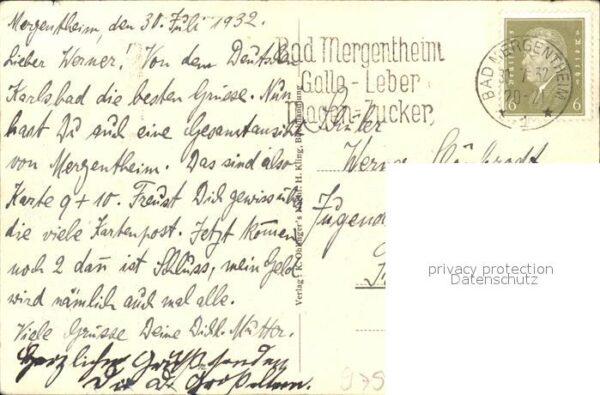 Mergentheim, den 30. Juli 1932.
Lieber Werner! Von dem Deutschen
Karlsbad die besten Grüsse. Nun
hast Du auch eine Gesamtansicht
von Mergentheim. Das sind also
Karte 9 + 10. Freust Dich gewiss über
die viele Kartenpost. Jetzt kommen
noch 2 dann ist Schluss, mein Geld
wird nämlich auch mal alle.
Viele Grüsse Deine Dich l. Mutter.
Herzliche Grüße senden
Die Großeltern.
Verlag: K. Ohlinger's Nachf. H. Kling, Buchhandlung
Bad Mergentheim
Galle-Leber
Magen-Zucker
BAD MERGENTHEIM
7.32
20-21
1
6
6
Schüler
Werner
Jugend
privacy protection
Datenschutz